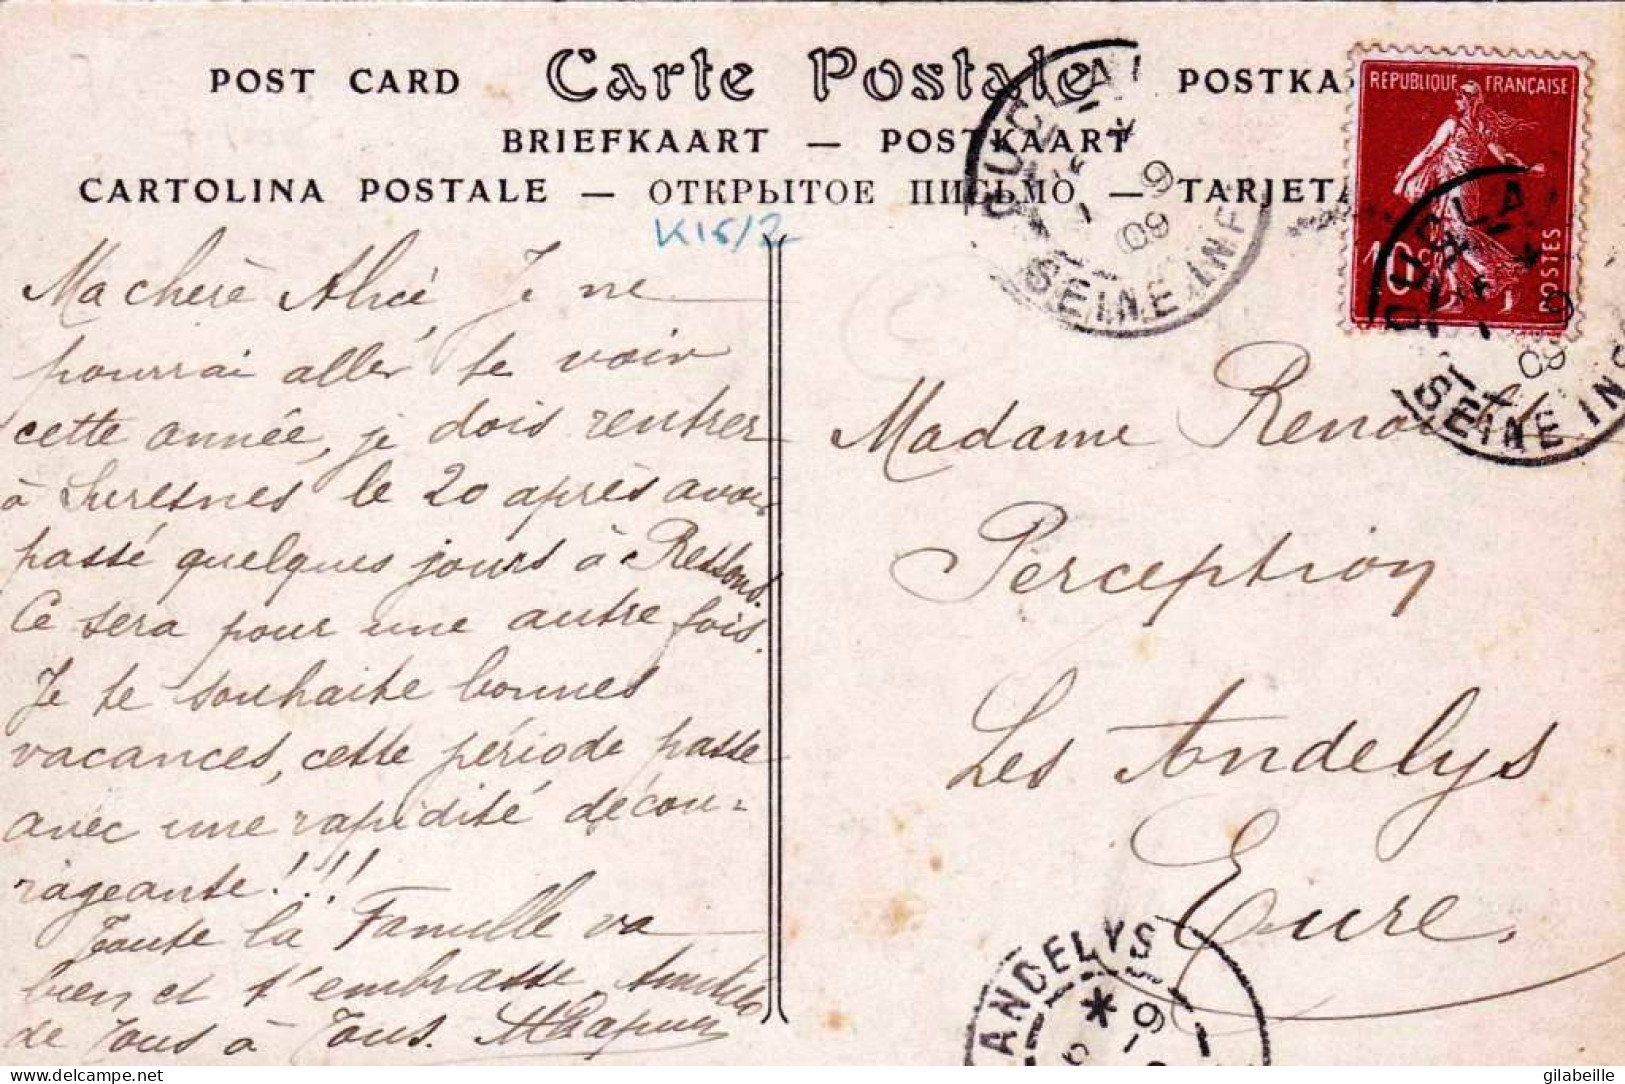 POST CARD Carte Postale POSTKA
BRIEFKAART — POSTKAART
CARTOLINA POSTALE — ОТКРЫТОЕ ПИСЬМО — TARJETA
K15/2
REPUBLIQUE FRANÇAISE
10 c
POSTES
DUCLAIR
9
09
SEINE INF
DUCLA
9
09
SEINE INF
Ma chère Alice, Je ne
pourrai aller te voir
cette année, je dois rentrer
à Suresnes le 20 après avoir
passé quelques jours à Ressons.
Ce sera pour une autre fois.
Je te souhaite bonnes
vacances, cette période passe
avec une rapidité décou-
rageante!!!!
Toute la Famille va
bien et t'embrasse. Amitiés
de Tous à Tous.
Madame
Perception
Les Andelys
Eure.
ANDELYS
gilabeille